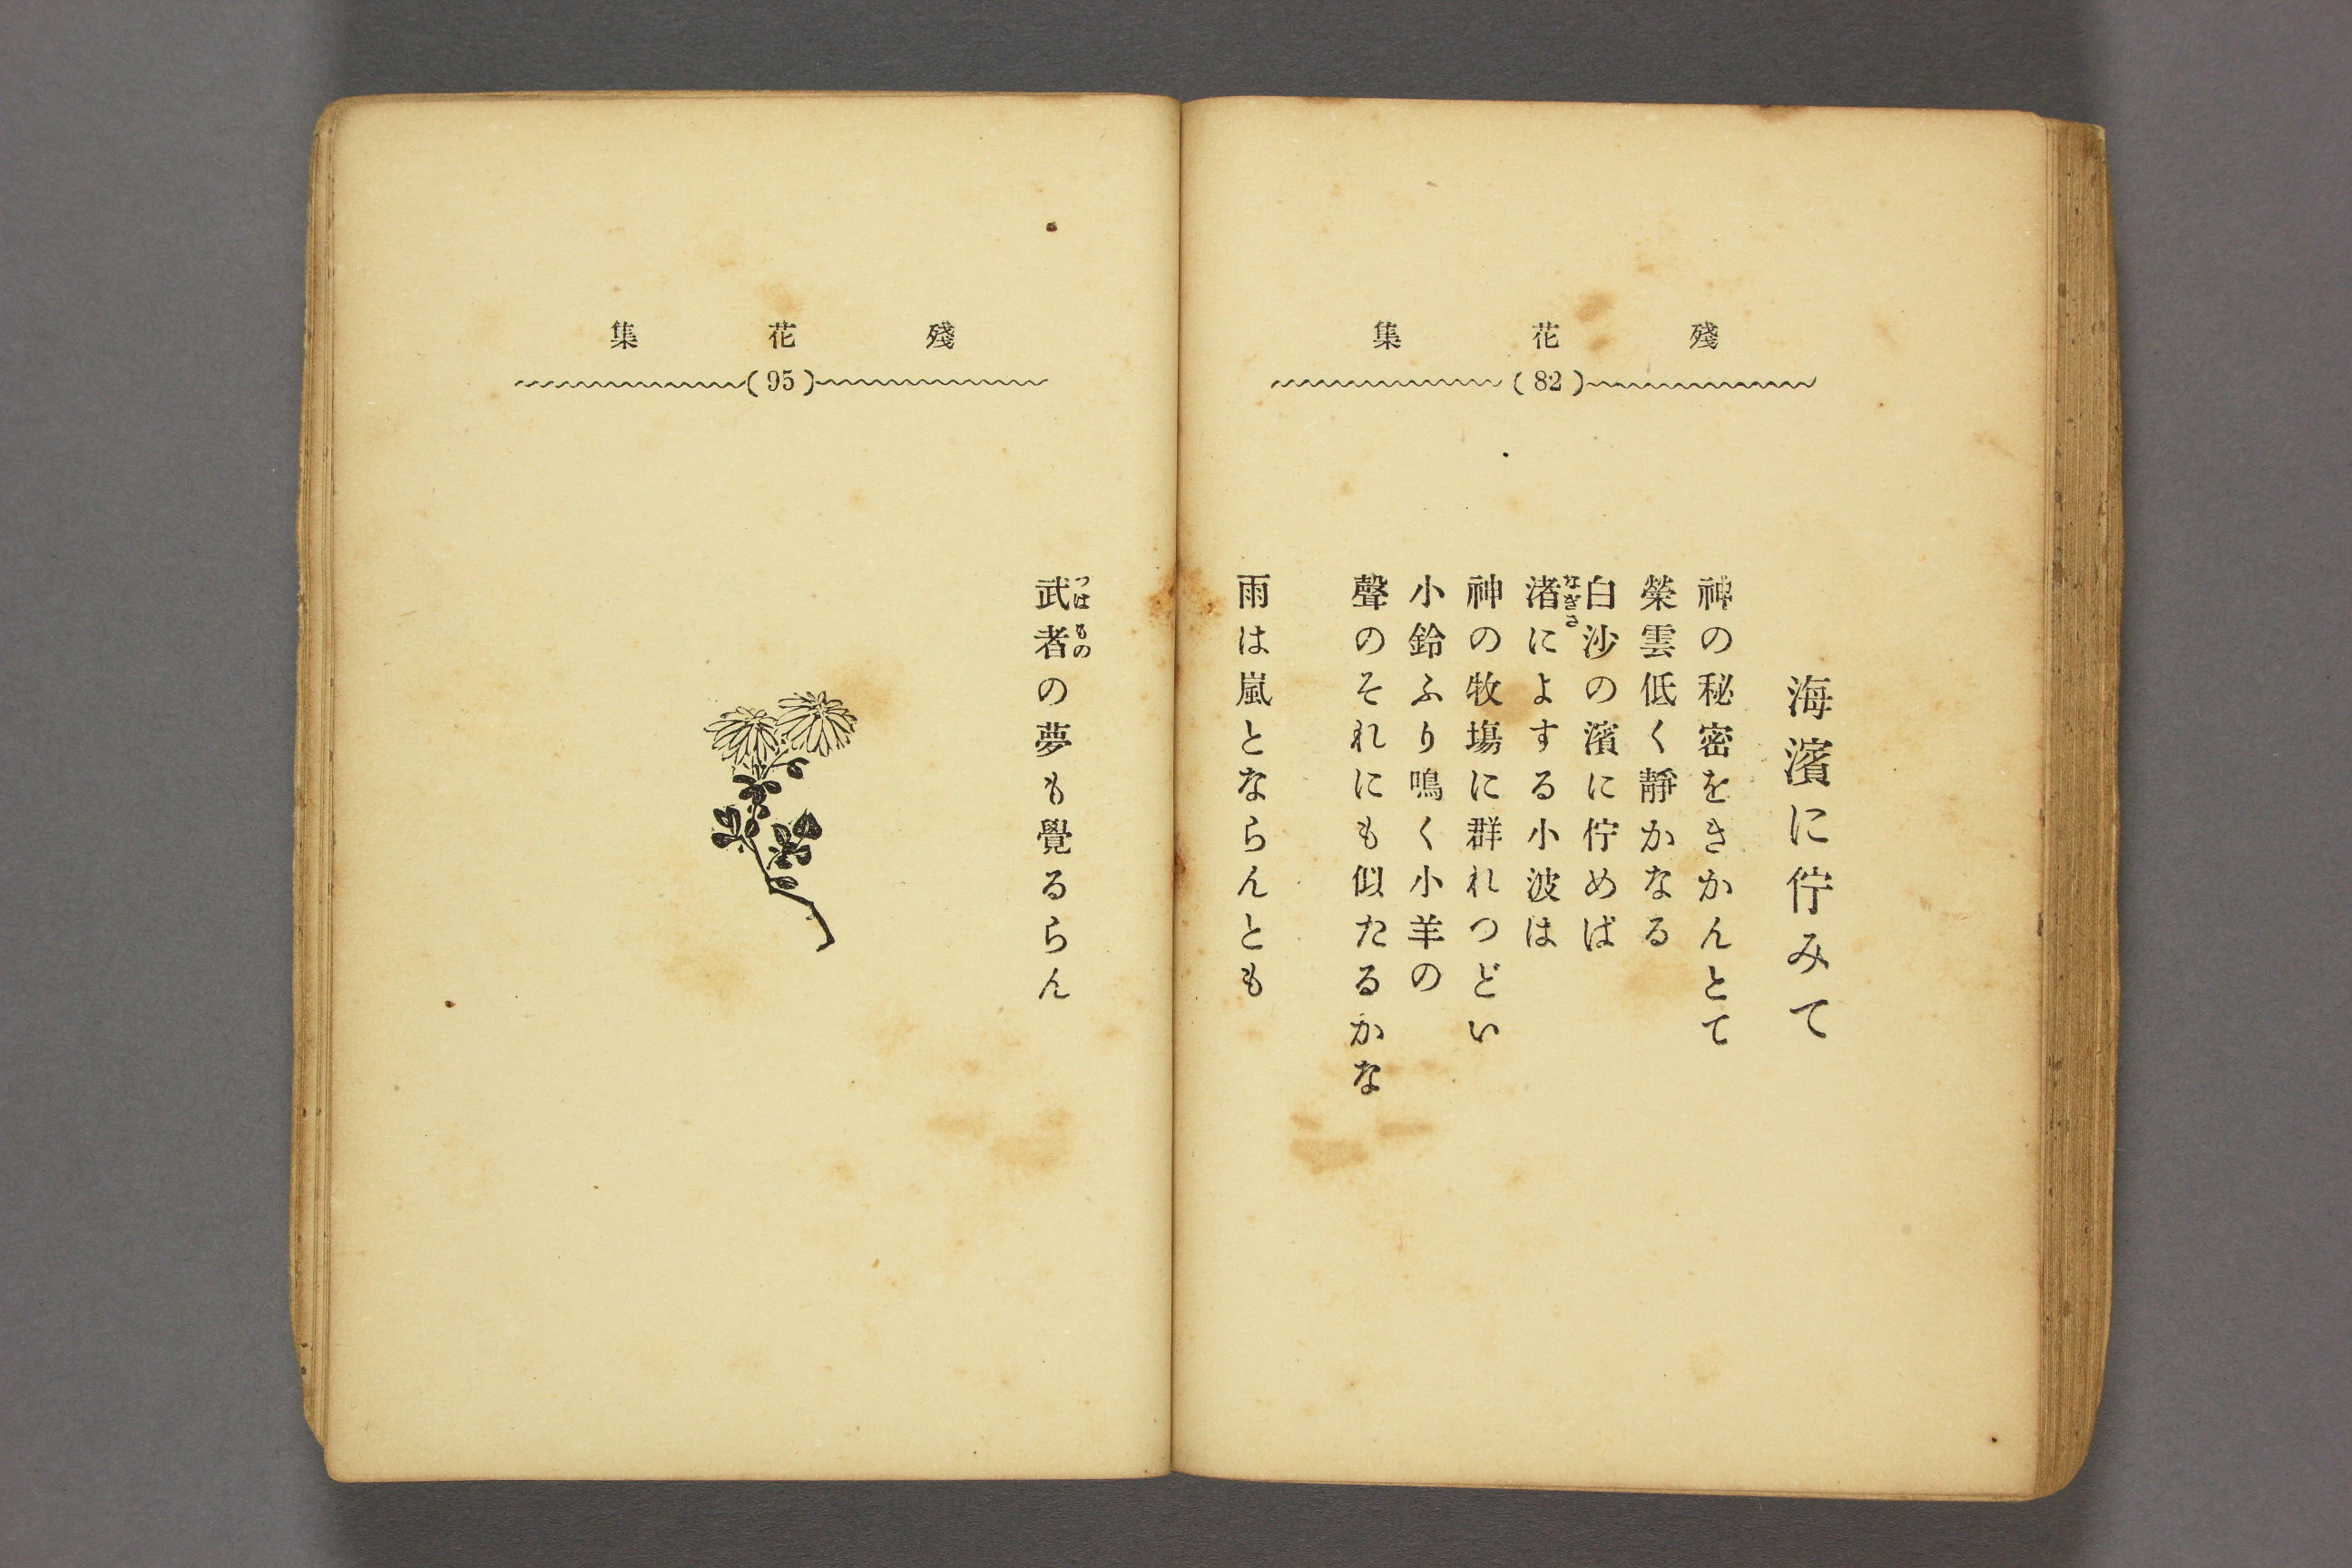 殘花集
(82)
海濱に佇みて
神の秘密をきかんとて
榮雲低く靜かなる
白沙の濱に佇めば
渚によする小波は
なぎさ
神の牧塲に群れつどい
小鈴ふり鳴く小羊の
聲のそれにも似たるかな
雨は嵐とならんとも
殘花集
(95)
武者の夢も覺るらん
つはもの